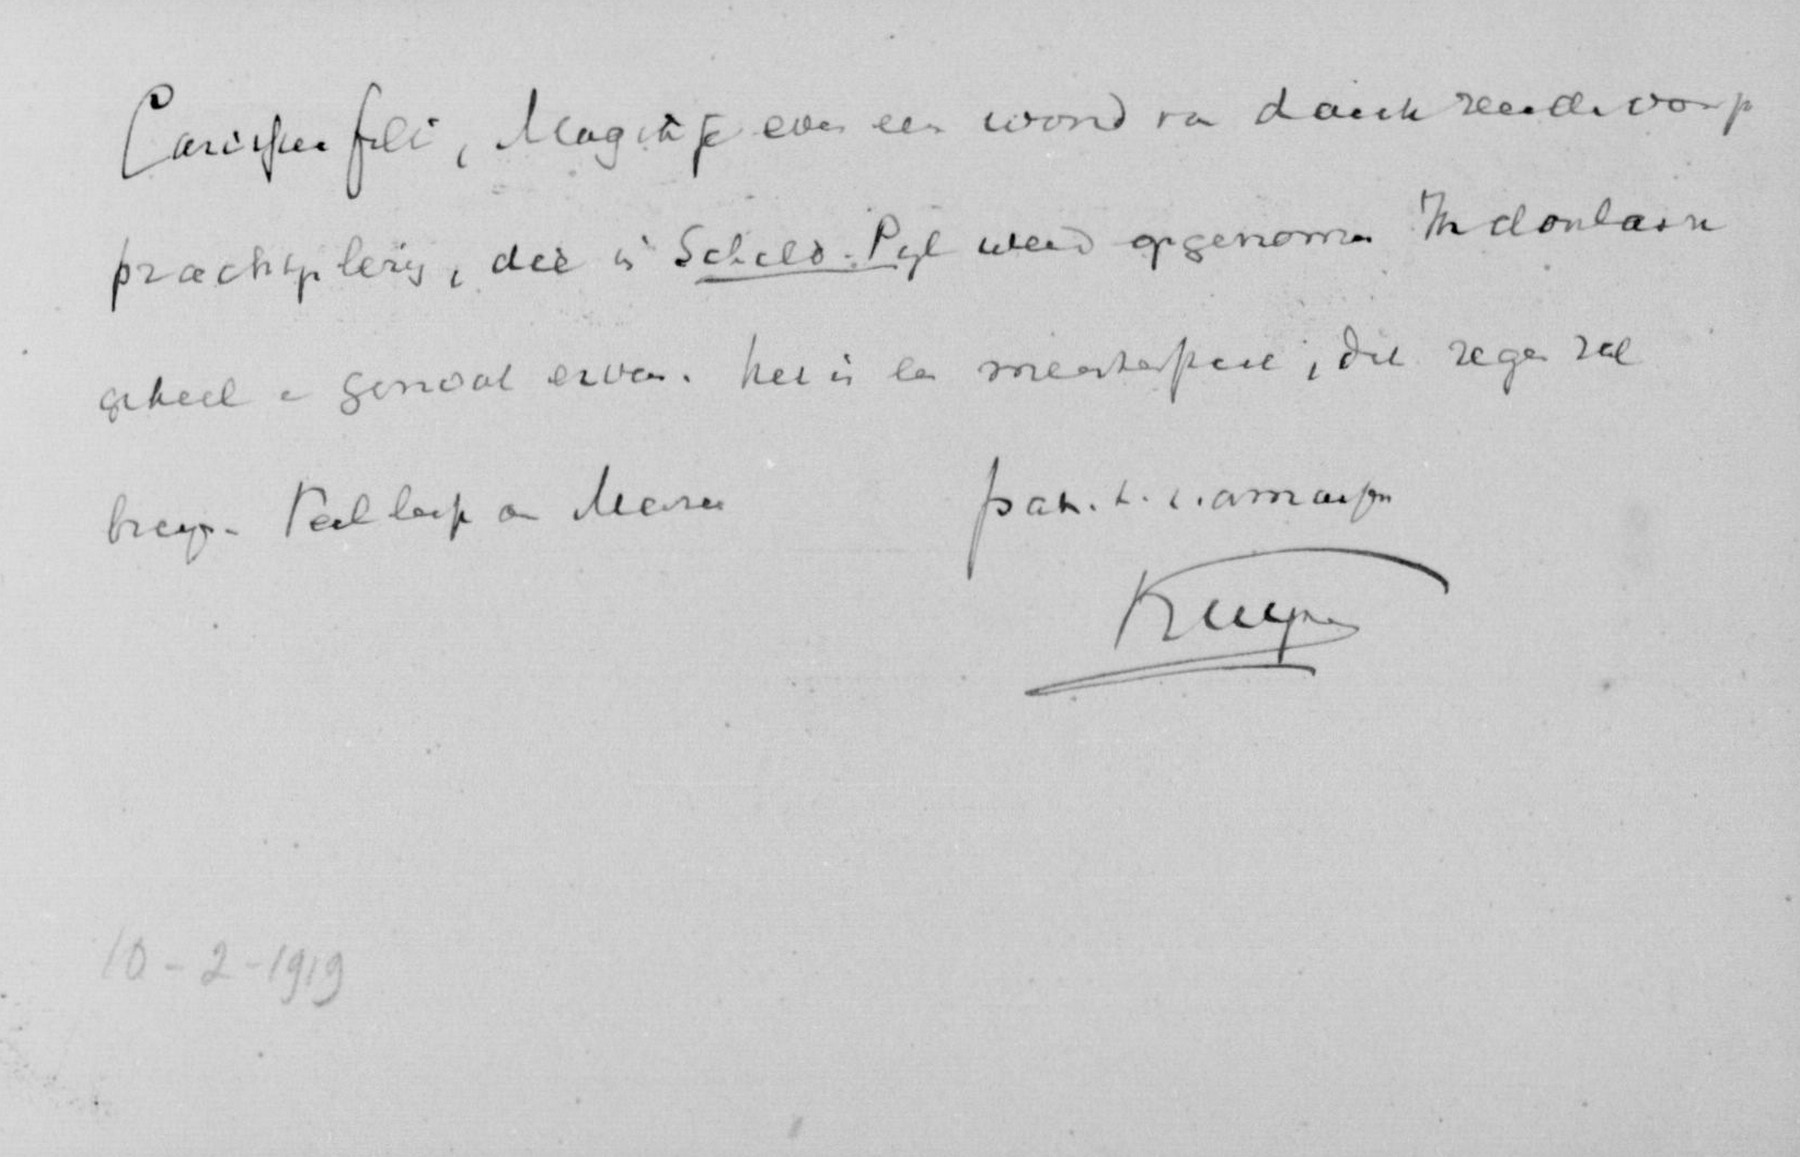 Carissime fili, Mag ik je even een woord van dank zenden voor je
prachtige lezing, die in Schild - Pijl werd opgenomen. Ik doorlas ze
geheel en genoot ervan. Het is een meesterstuk, dat zegen zal
brengen. Veel liefs aan
pat. t. t. amans
Kuyper
10-2-1919